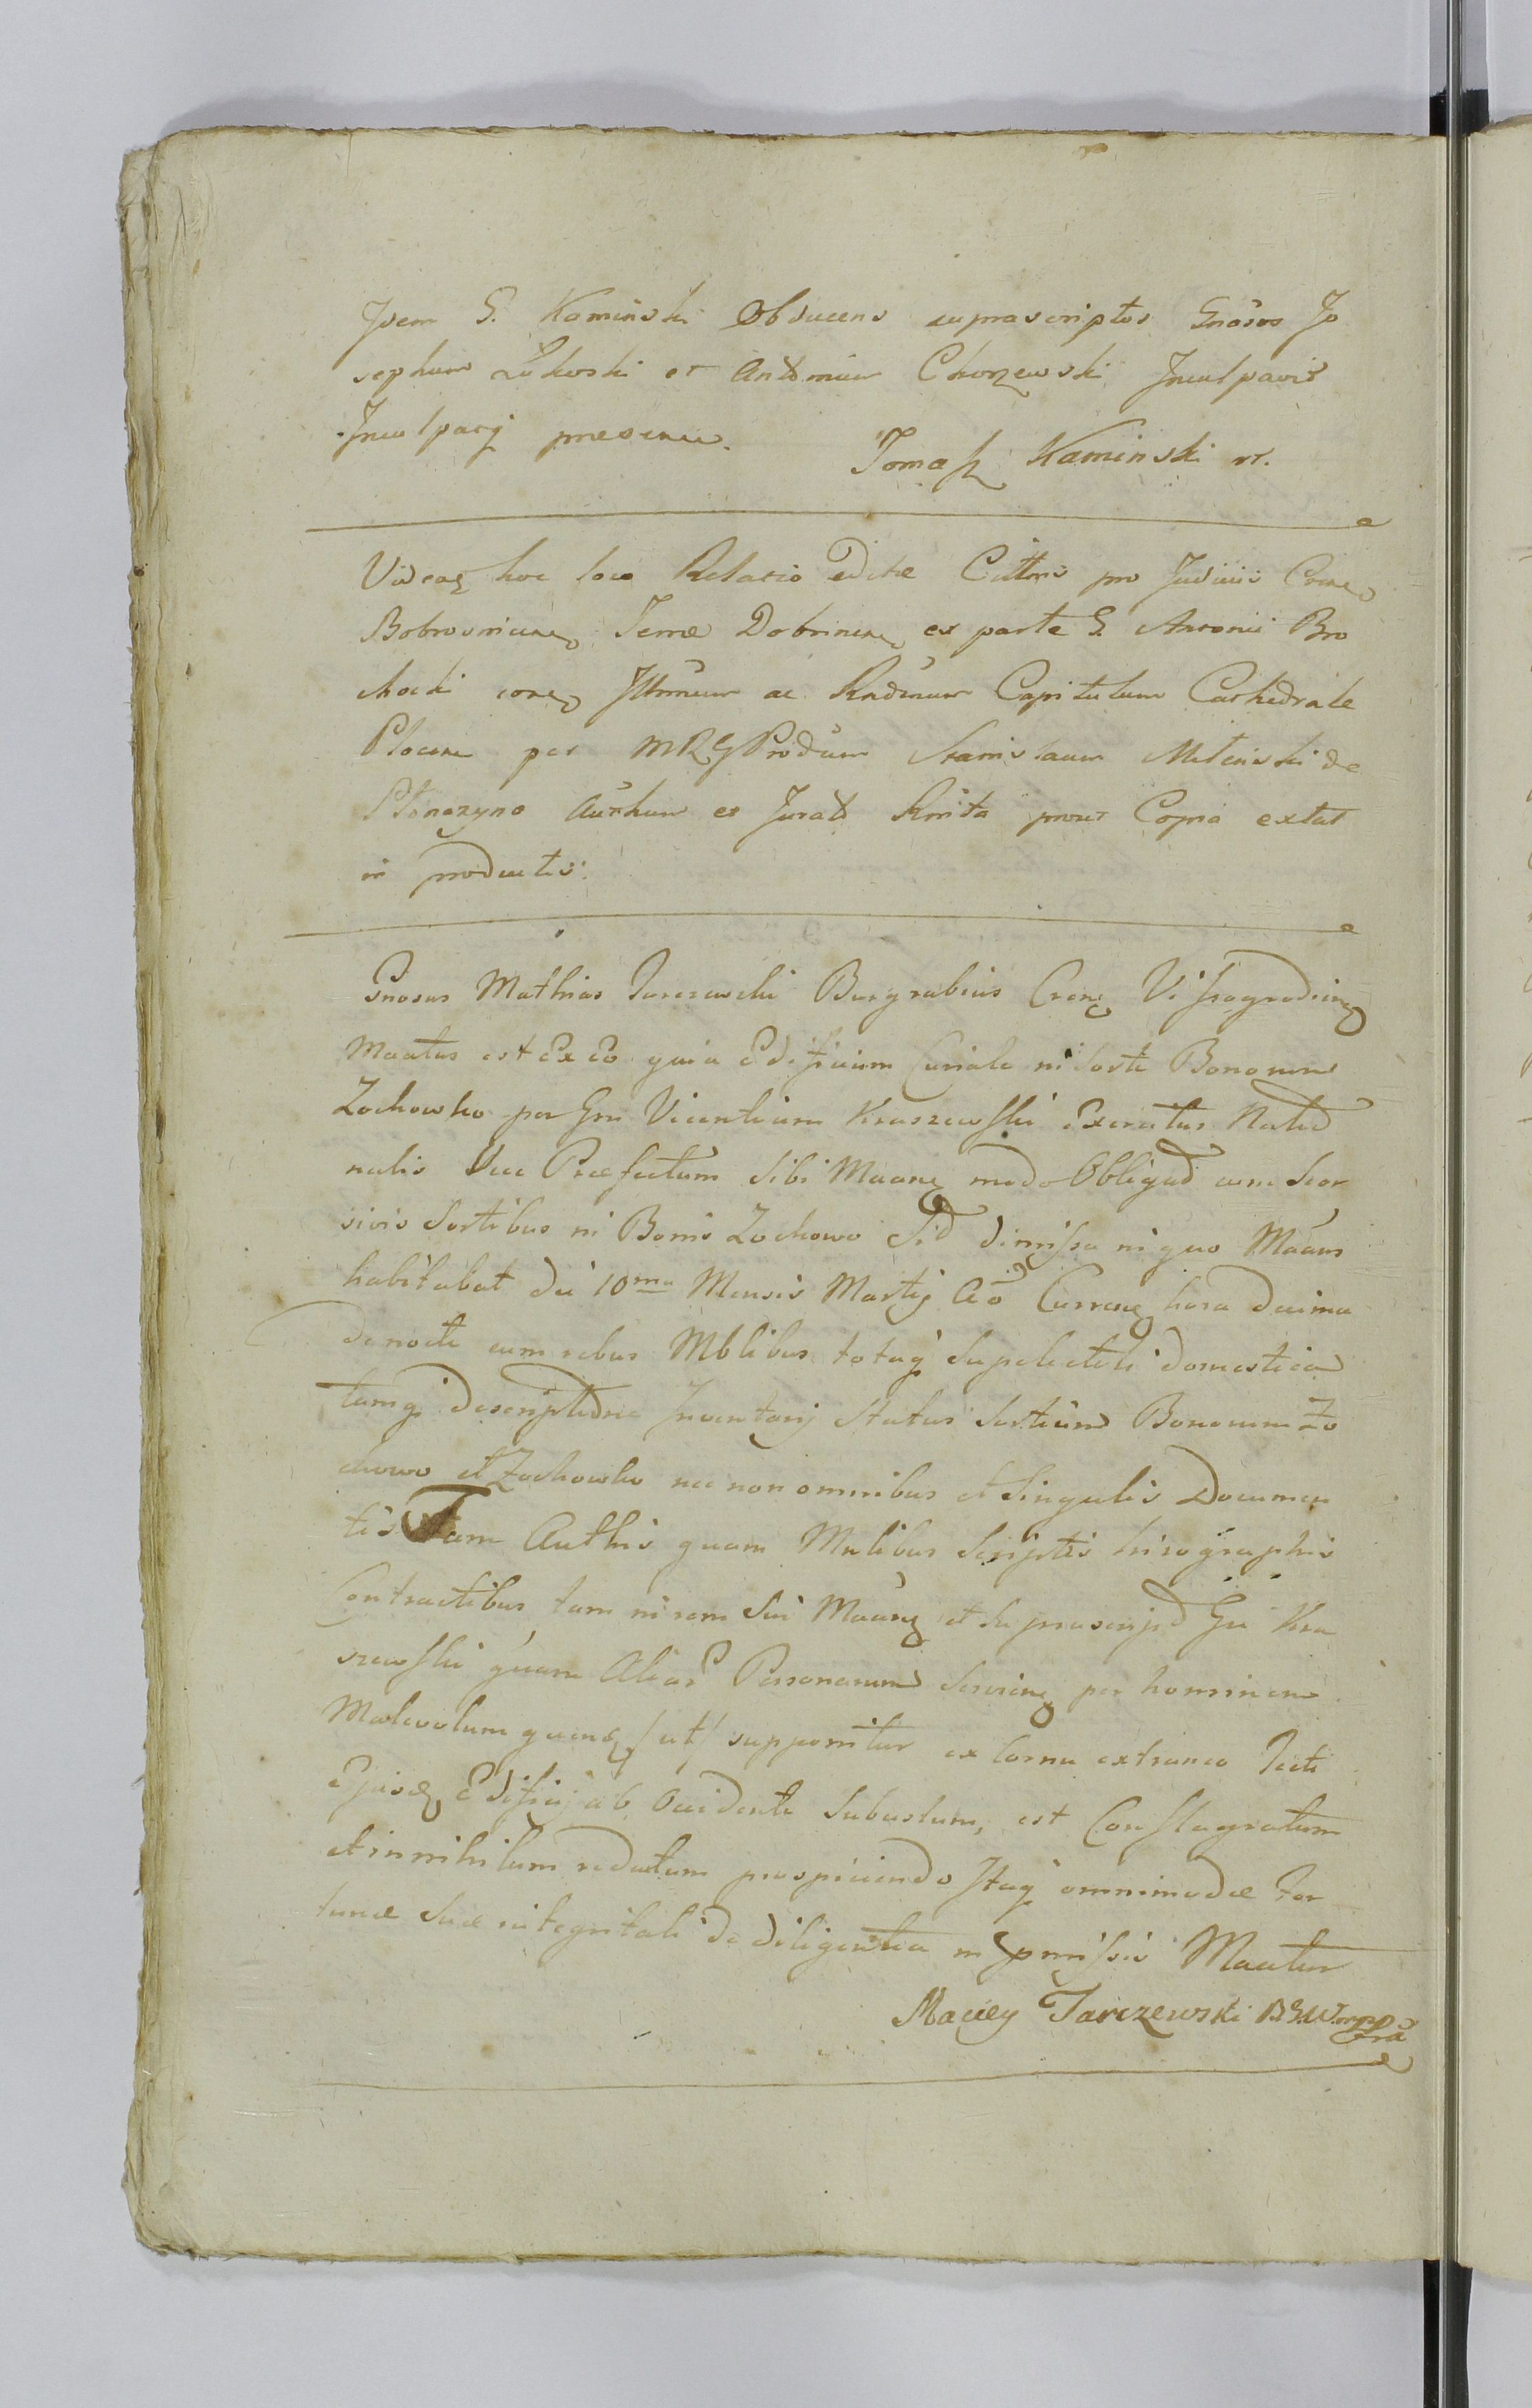 Idem G. Kaminski Obducens suprascriptos Gnosos Jo
sephum Zukoski et Antonium Chorzewski Inculpavit
Inculpatq presence.
Tomasz Kaminski mp.
Videaq hoc loco Relatio editae Cittonis pro Judiciis Crens
Bobrovnicens Terrae Dobrinens ex parte G. Antonii Bro
chocki cone Illmum ac Rndmum Capitulum Cathedrale
Plocen per MRGProdum Stanislaum Miloński de
Płonczyno Authum et Jurato Knita prout Copia extat
in productis.
Gnosus Mathias Tarczewski Burgrabius Crens Vissogrodiens
Maatus est Ex Eo quia Edificium Curiale in Sorte Bonorum
Zochowko per Gm Vicentium Kraszewski Exercitus Natio
nalis Vice Praefectum Sibi Maane modo Obligato cum Seor
sivis Sortibus in Bonis Zochowo Sid dimissa in quo Maans
habitabat die 10ma Mensis Martij Ao Currene hora decima
de nocte cum rebus Mblibus totaq Supelectili domestica
tumq descriptione Inventarij Status Sortium Bonorum Zo
chowo et Zochowko nec non omnibus et Singulis Documen
tis Tam Authis quam Mnlibus Scriptis hirographis
Contractibus tam in rem Sui Maans et Suprascripto Gni Kra
szewski quam Aliar Personarum Servieng per hominem
Malevolum quenq /ut/ supponitur ex Cornu extraneo Tecti
Ejusdq Edificij ab Occidente Subustum, est Conflagratum
et in nihilum redactum prospiciendo Itaq omnimodae For
tunae Suae integritati de diligentia in pmissis Maatur
Maciey Tarczewski B.G.W. mpp